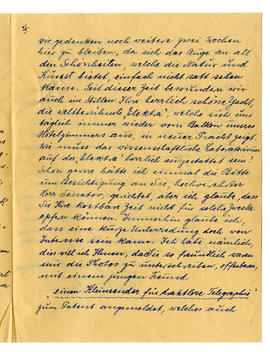 II.
wir gedenken noch weitere zwei Wochen
hier zu bleiben, da sich das Auge an all
den Schönheiten, welche die Natur und
Kunst bietet, einfach nicht satt sehen
kann. Seit dieser Zeit bewundern wir
auch im Stillen Ihre herrlich schöne Yacht,
die weltberühmte "Elektra", welche sich uns
täglich immer wieder vom Balkon unseres
Hotelzimmers aus, in neuer Pracht zeigt.
Wie muss das wissenschaftliche Laboratorium
auf der "Elektra" herrlich ausgestattet sein!
Schon gerne hätte ich einmal die Bitte
um Besichtigung an Sie, hochverehrter
Herr Senator, gerichtet, aber ich glaube, dass
Sie Ihre kostbare Zeit nicht für solche Zwecke
opfern können. Immerhin glaube ich,
dass eine kurze Unterredung doch von
Interesse sein kann. Ich habe nämlich,
dies will ich Ihnen, da Sie so freundlich waren
mir die Photos zu unterschreiben, offenbaren,
mit einem jungen Freund
"einen Kleinsender für drahtlose Telegraphie"
zum Patent angemeldet, welches auch